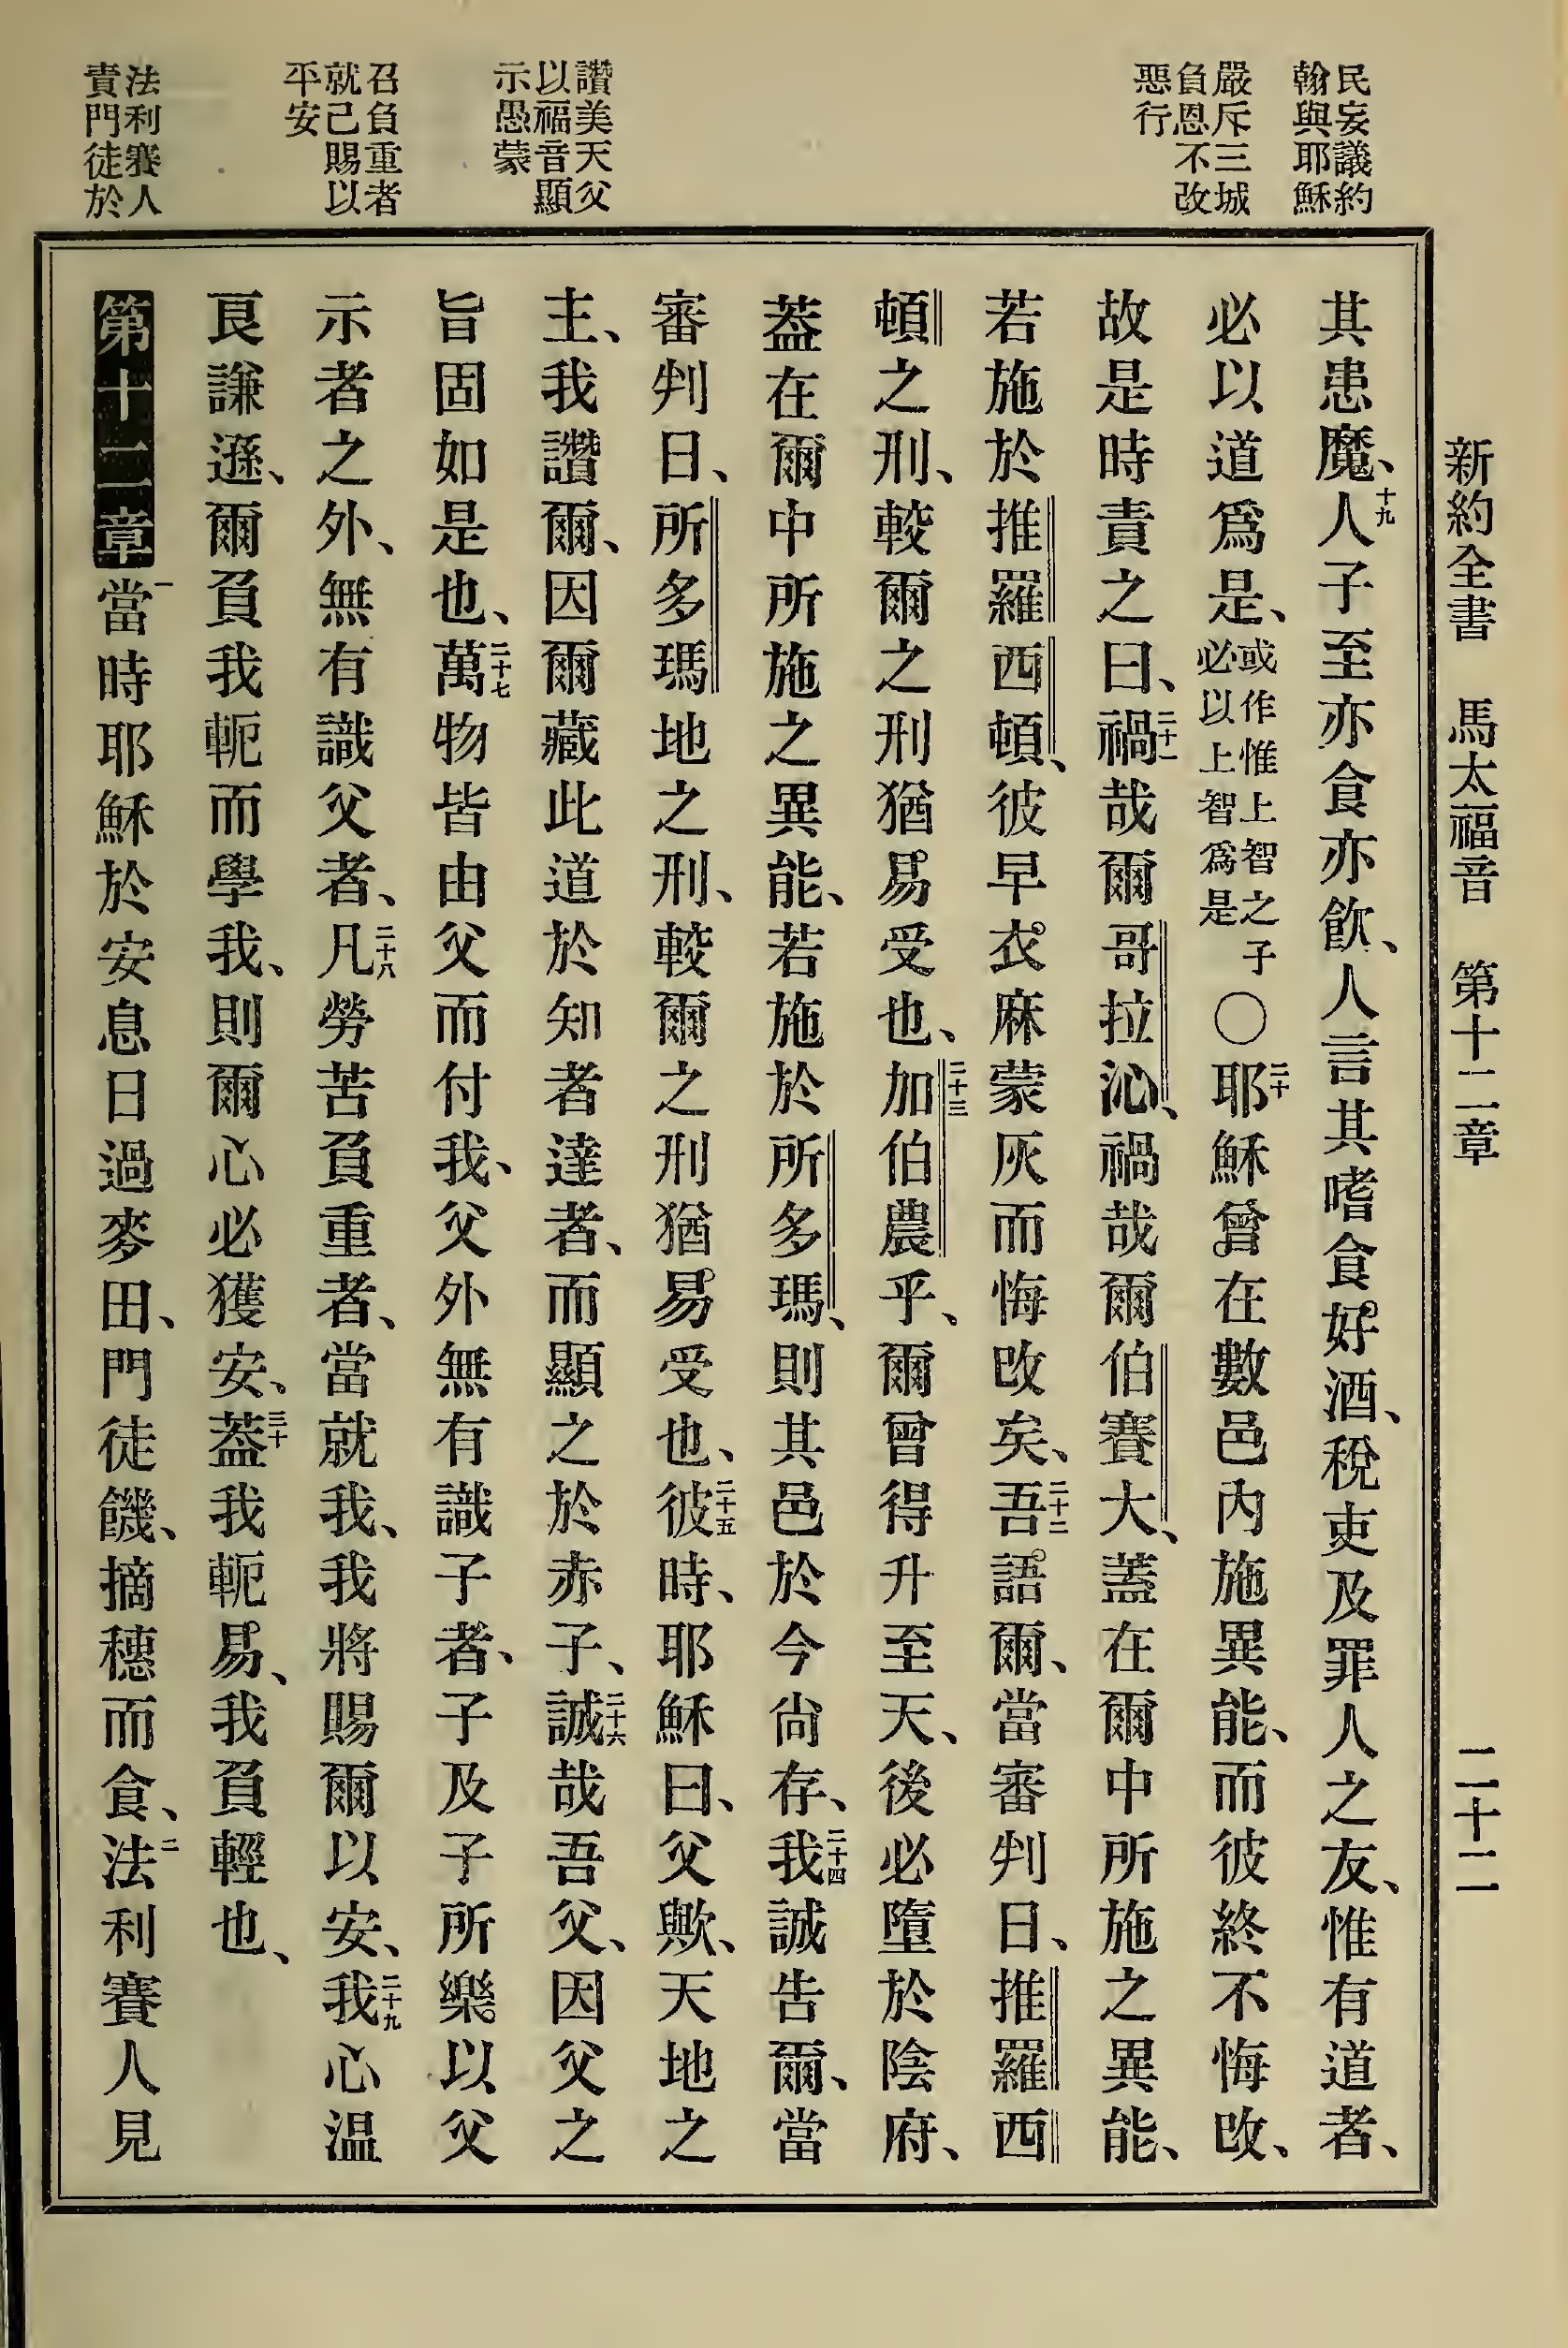 新約全書 馬太福音 第十二章 二十二
民妄議約
翰與耶穌
嚴斥三城
負恩不改
惡行
讚美天父
以福音顯
示愚蒙
召負重者
就己賜以
平安
法利賽人
責門徒於
其患魔、十九人子至亦食亦飲、人言其嗜食好酒、稅吏及罪人之友、惟有道者、
必以道爲是、或作惟上智之子必以上智爲是〇二十耶穌曾在數邑內施異能、而彼終不悔改、
故是時責之曰、二十一禍哉爾哥拉沁、禍哉爾伯賽大、蓋在爾中所施之異能、
若施於推羅西頓、彼早衣麻蒙灰而悔改矣、二十二吾語爾、當審判日、推羅西
頓之刑、較爾之刑猶易受也、二十三加伯農乎、爾曾得升至天、後必墮於陰府、
蓋在爾中所施之異能、若施於所多瑪、則其邑於今尙存、二十四我誠告爾、當
審判日、所多瑪地之刑、較爾之刑猶易受也、二十五彼時、耶穌曰、父歟、天地之
主、我讚爾、因爾藏此道於知者達者、而顯之於赤子、二十六誠哉吾父、因父之
旨固如是也、二十七萬物皆由父而付我、父外無有識子者、子及子所樂以父
示者之外、無有識父者、二十八凡勞苦負重者、當就我、我將賜爾以安、二十九我心温
良謙遜、爾負我軛而學我、則爾心必獲安、三十蓋我軛易、我負輕也、
第十二章 一當時耶穌於安息日過麥田、門徒饑、摘穗而食、二法利賽人見